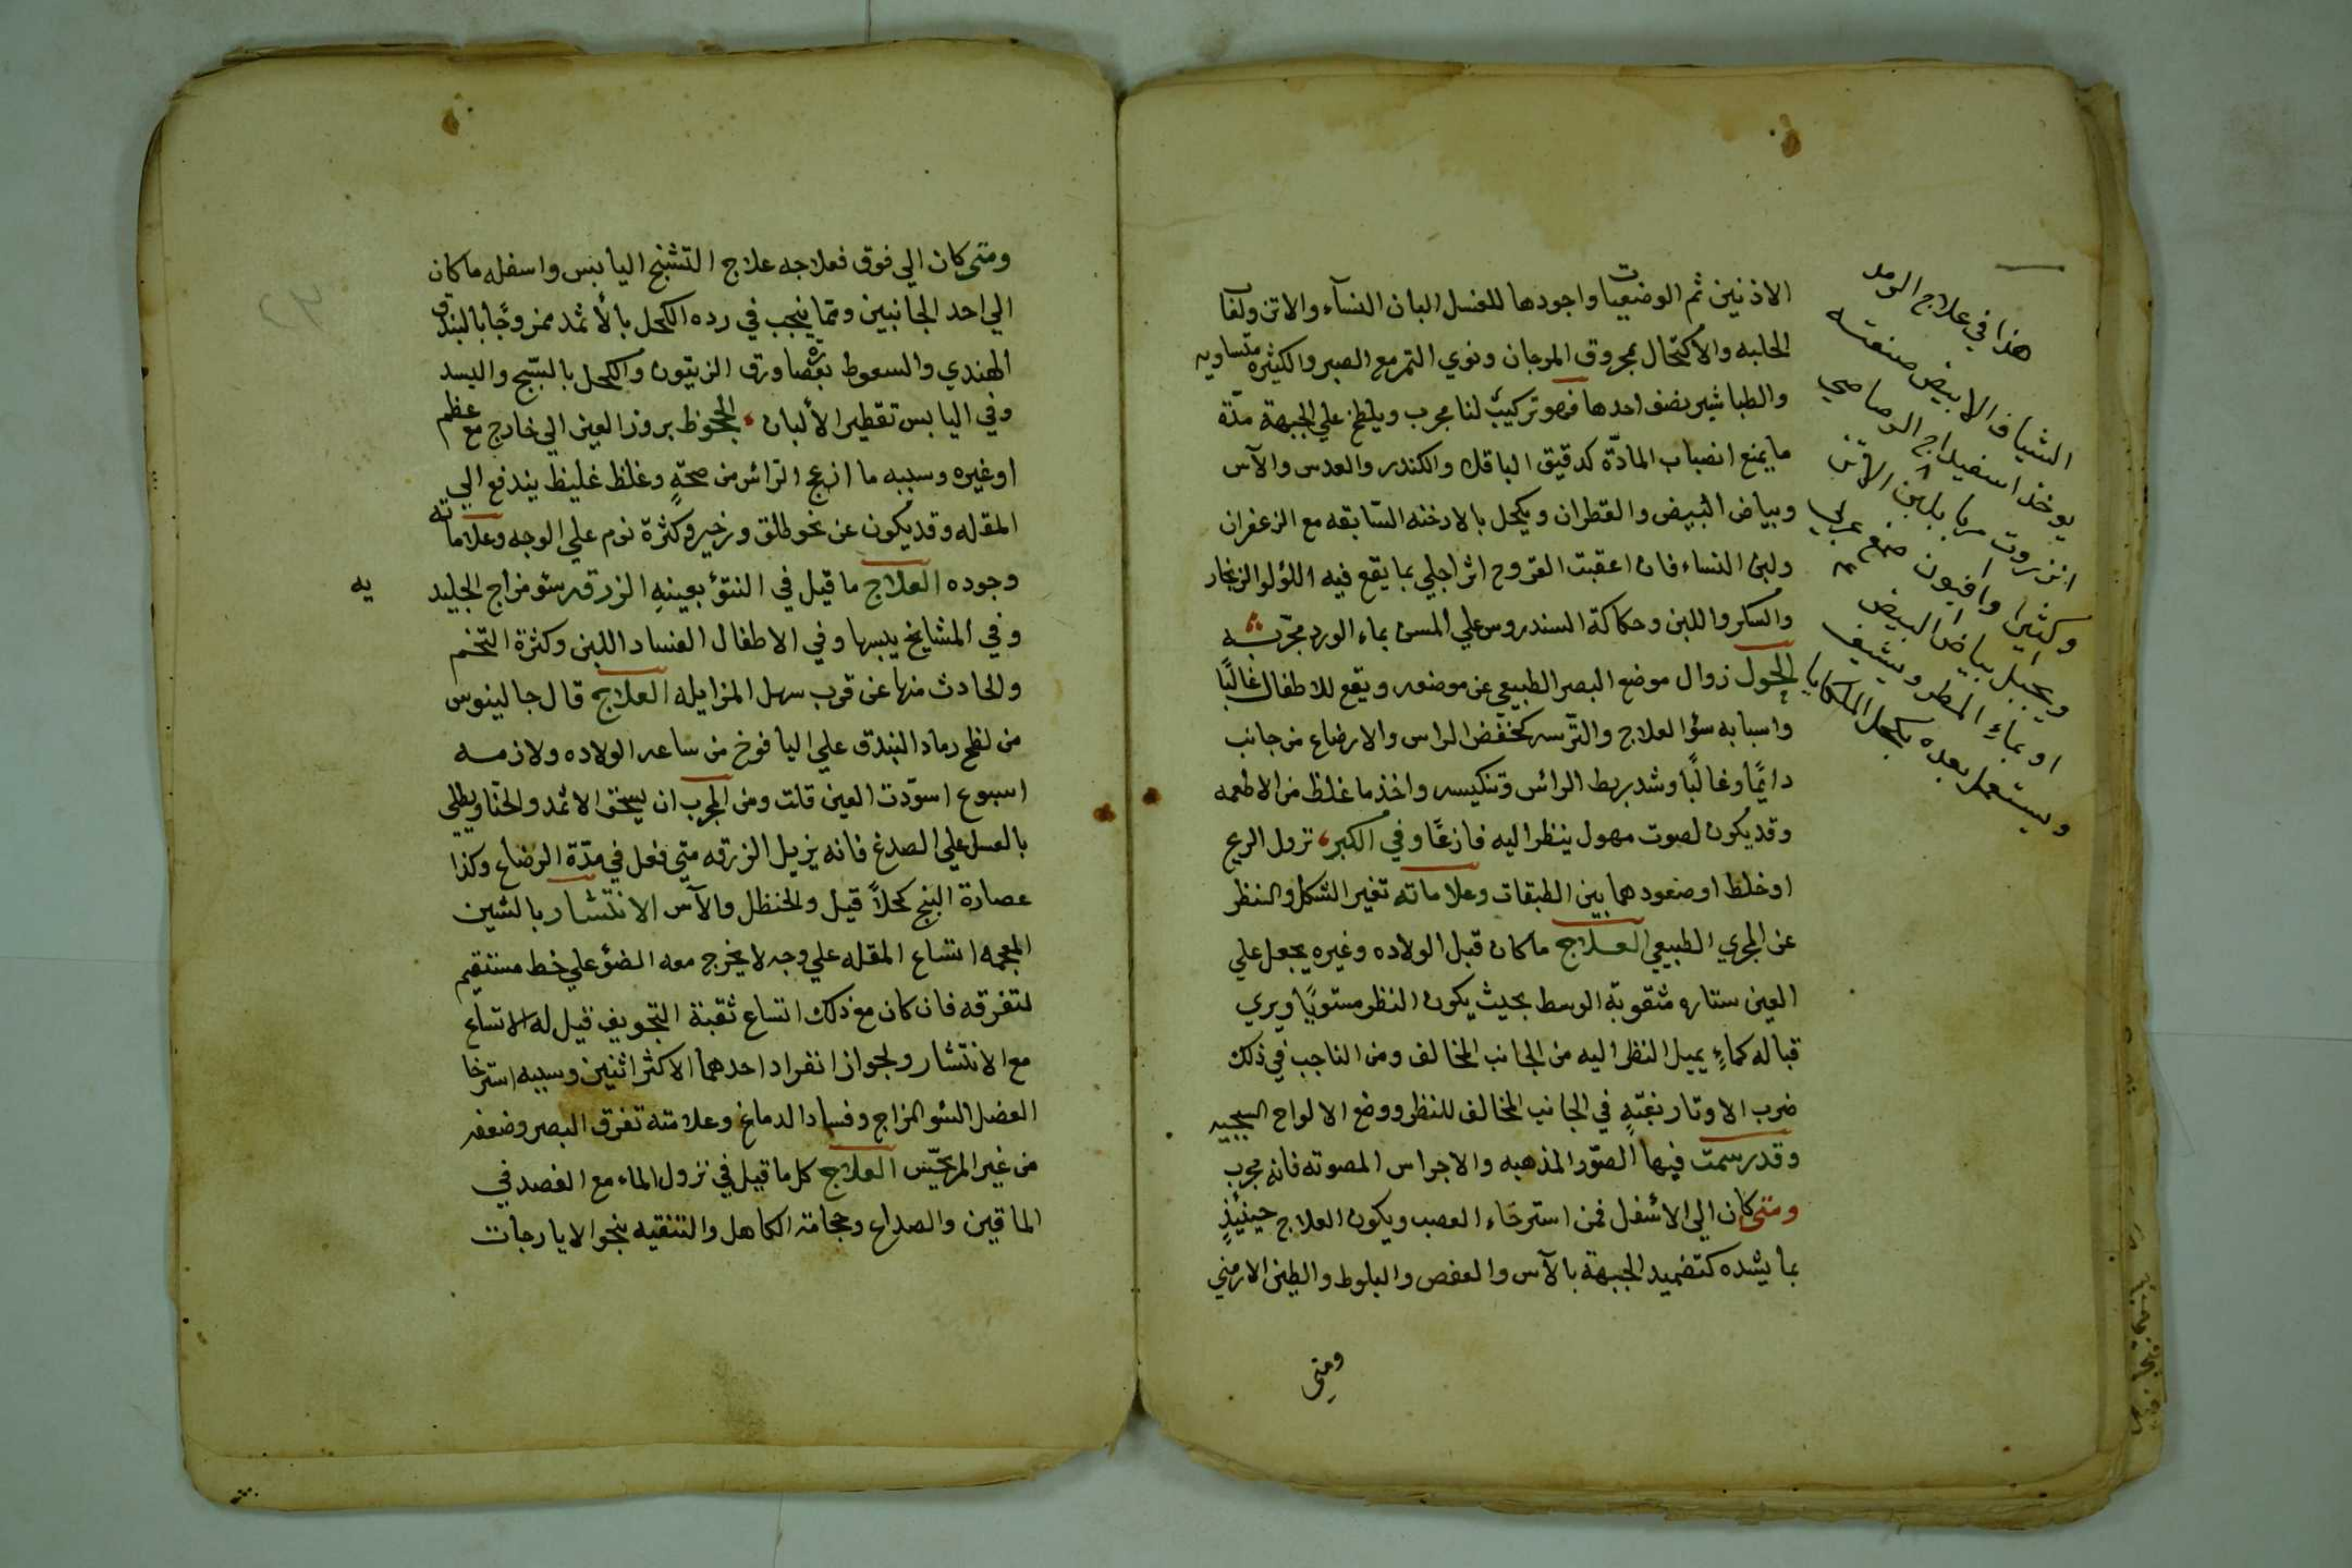 الاذنين ثم الوضعيات واجودها للغسل البان النسآء والاتن ولعاب
الحلبه والاكتحال بمحروق المرجان ونوي التمر مع الصبر والكثيره متساويه
والطباشير بضف احدها فهو تركيب لنا مجرب ويلطخ علي الجبهة مدّة
ما يمنع انصباب المادّة كدقيق الباقلا والكندر والعدس والآس
وبياض البيض والقطران ويكحل بالادخنه السّابقه مع الزعفران
ولبن النساء فان اعقبت القروح اثرا جلي بما يقع فيه اللؤلو الزنجار
والسكر واللبن وحكاكة السندروس علي المسن بماء الورد مجرّبه
الحول زوال موضع البصر الطبيعي عن موضعه ويقع للاطفال غالبًا
واسبابه سؤ العلاج والترسه كخفض الراس والارضاع من جانب
دايمًا وغالبًا وشد بربط الراس وتنكيسه واخذ ما غلظ من الاطعمه
وقد يكون لصوت مهول ينظر اليه فازعًا وفي الكبر نزول الريح
او خلط او صعودهما بين الطبقات وعلاماته تغير الشكل والنظر
عن المجري الطبيعي العلاج ما كان قبل الولاده وغيره يجعل علي
العين ستاره مثقوبة الوسط بحيث يكون النظر مستويًا ويري
قباله كماءٍ يميل النظر اليه من الجانب المخالف ومن الناجب في ذلك
ضرب الاوتار بغتةٍ في الجانب المخالف للنظر ووضع الالواح السبجيه
وقد رسمت فيها الصّور المذهبه والاجراس المصوته فانه مجرب
ومتي كان الي الاسفل فمن استرخاء العصب ويكون العلاج حينيذٍ
بما يشده كتضميد الجبهة بالآس والعفص والبلوط والطين الارمني
ومتي
هذا في علاج الرمد
الشياف الابيض صنعته
يوخذ اسفيداج الرصاصي
انزروت مربا بلبن الاتن
وكثيرا وافيون صمغ عربي
ويجبل ببياض البيض
او بماءِ المطر ويشيف
ويستعمل بعده بكحل الملكايا
ومتي كان الي فوق فعلاجه علاج التشنج اليابس واسفله ما كان
الي احد الجانبين ومما ينجب في رده الكحل بالأثمد ممزوجًا بالبندق
الهندي والسعوط بعصارة ورق الزيتون والكحل بالسّبج والبسد
وفي اليابس تقطير الألبان الجحوظ بروز العين الي خارج مع عظم
او غيره وسببه ما ازعج الرّاس من صحّةٍ وغلظ غليظ يندفع الي
المقله وقد يكون عن نحو طلق وزحير وكثرة نوم علي الوجه وعلاماته
وجوده العلاج ما قيل في النتؤ بعينهِ الزرقه سؤ مزاج الجليديه
وفي المشايخ يبسها وفي الاطفال الفساد اللبن وكثرة التخم
والحادث منها عن قرب سهل المزايله العلاج قال جالينوس
من لطخ رماد البندق علي اليافوخ من ساعه الولاده ولازمه
اسبوع اسوّدت العين قلت ومن المجرب ان يسحق الاثمد والحنّا ويطلي
بالعسل علي الصدغ فانه يزيل الزرقه متي فعل في مدّة الرضاع وكذا
عصارة البنج كحلاً قيل والحنظل والآس الانتشار بالشين
المعجمه اتساع المقله علي وجه لا يخرج معه الضؤ علي خط مستقيم
لتفرقه فان كان مع ذلك اتساع ثقبة التجويف قيل له الاتساع
مع الانتشار ولجواز انفراد احدهما الاكثر اثنين وسببه استرخا
العضل السؤ المزاج وفساد الدماغ وعلامته تفرق البصر وضعفه
من غير المريحّس العلاج كل ما قيل في نزول الماء مع الفصد في
الماقين والصداع وحجامة الكاهل والتنقيه بنحو الايارجات